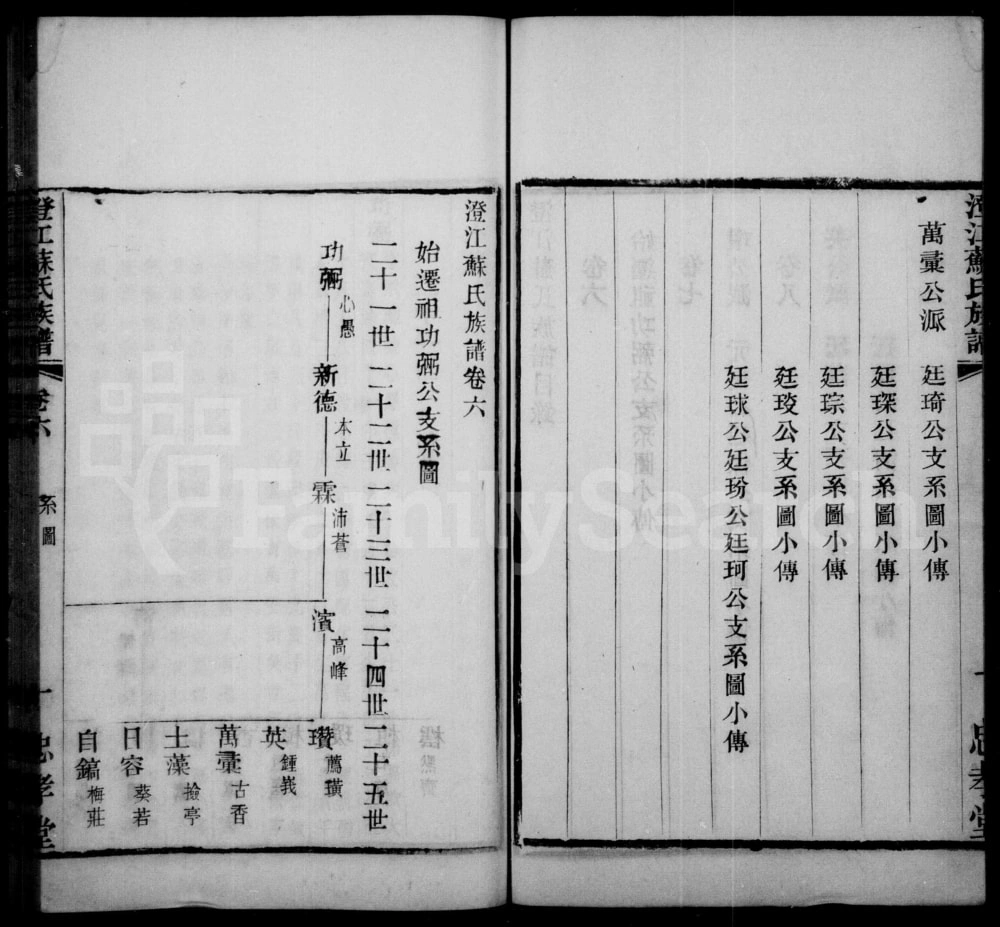 澄江蘇氏族譜
忠孝堂
萬彚公派
廷琦公支系圖小傳
廷琛公支系圖小傳
廷琮公支系圖小傳
廷珓公支系圖小傳
廷球公廷玢公廷珂公支系圖小傳
澄江蘇氏族譜卷六
始遷祖功弼公支系圖
二十一世 二十二世 二十三世 二十四世 二十五世
功弼 心愚 新德 本立 霖 沛蒼
濱 高峰 瓚 薦璜
英 鍾峩
萬彚 古香
士藻 撿亭
日容 葵若
自鎬 梅莊
澄江蘇氏族譜 卷六 系圖 一 忠孝堂
FamilySearch